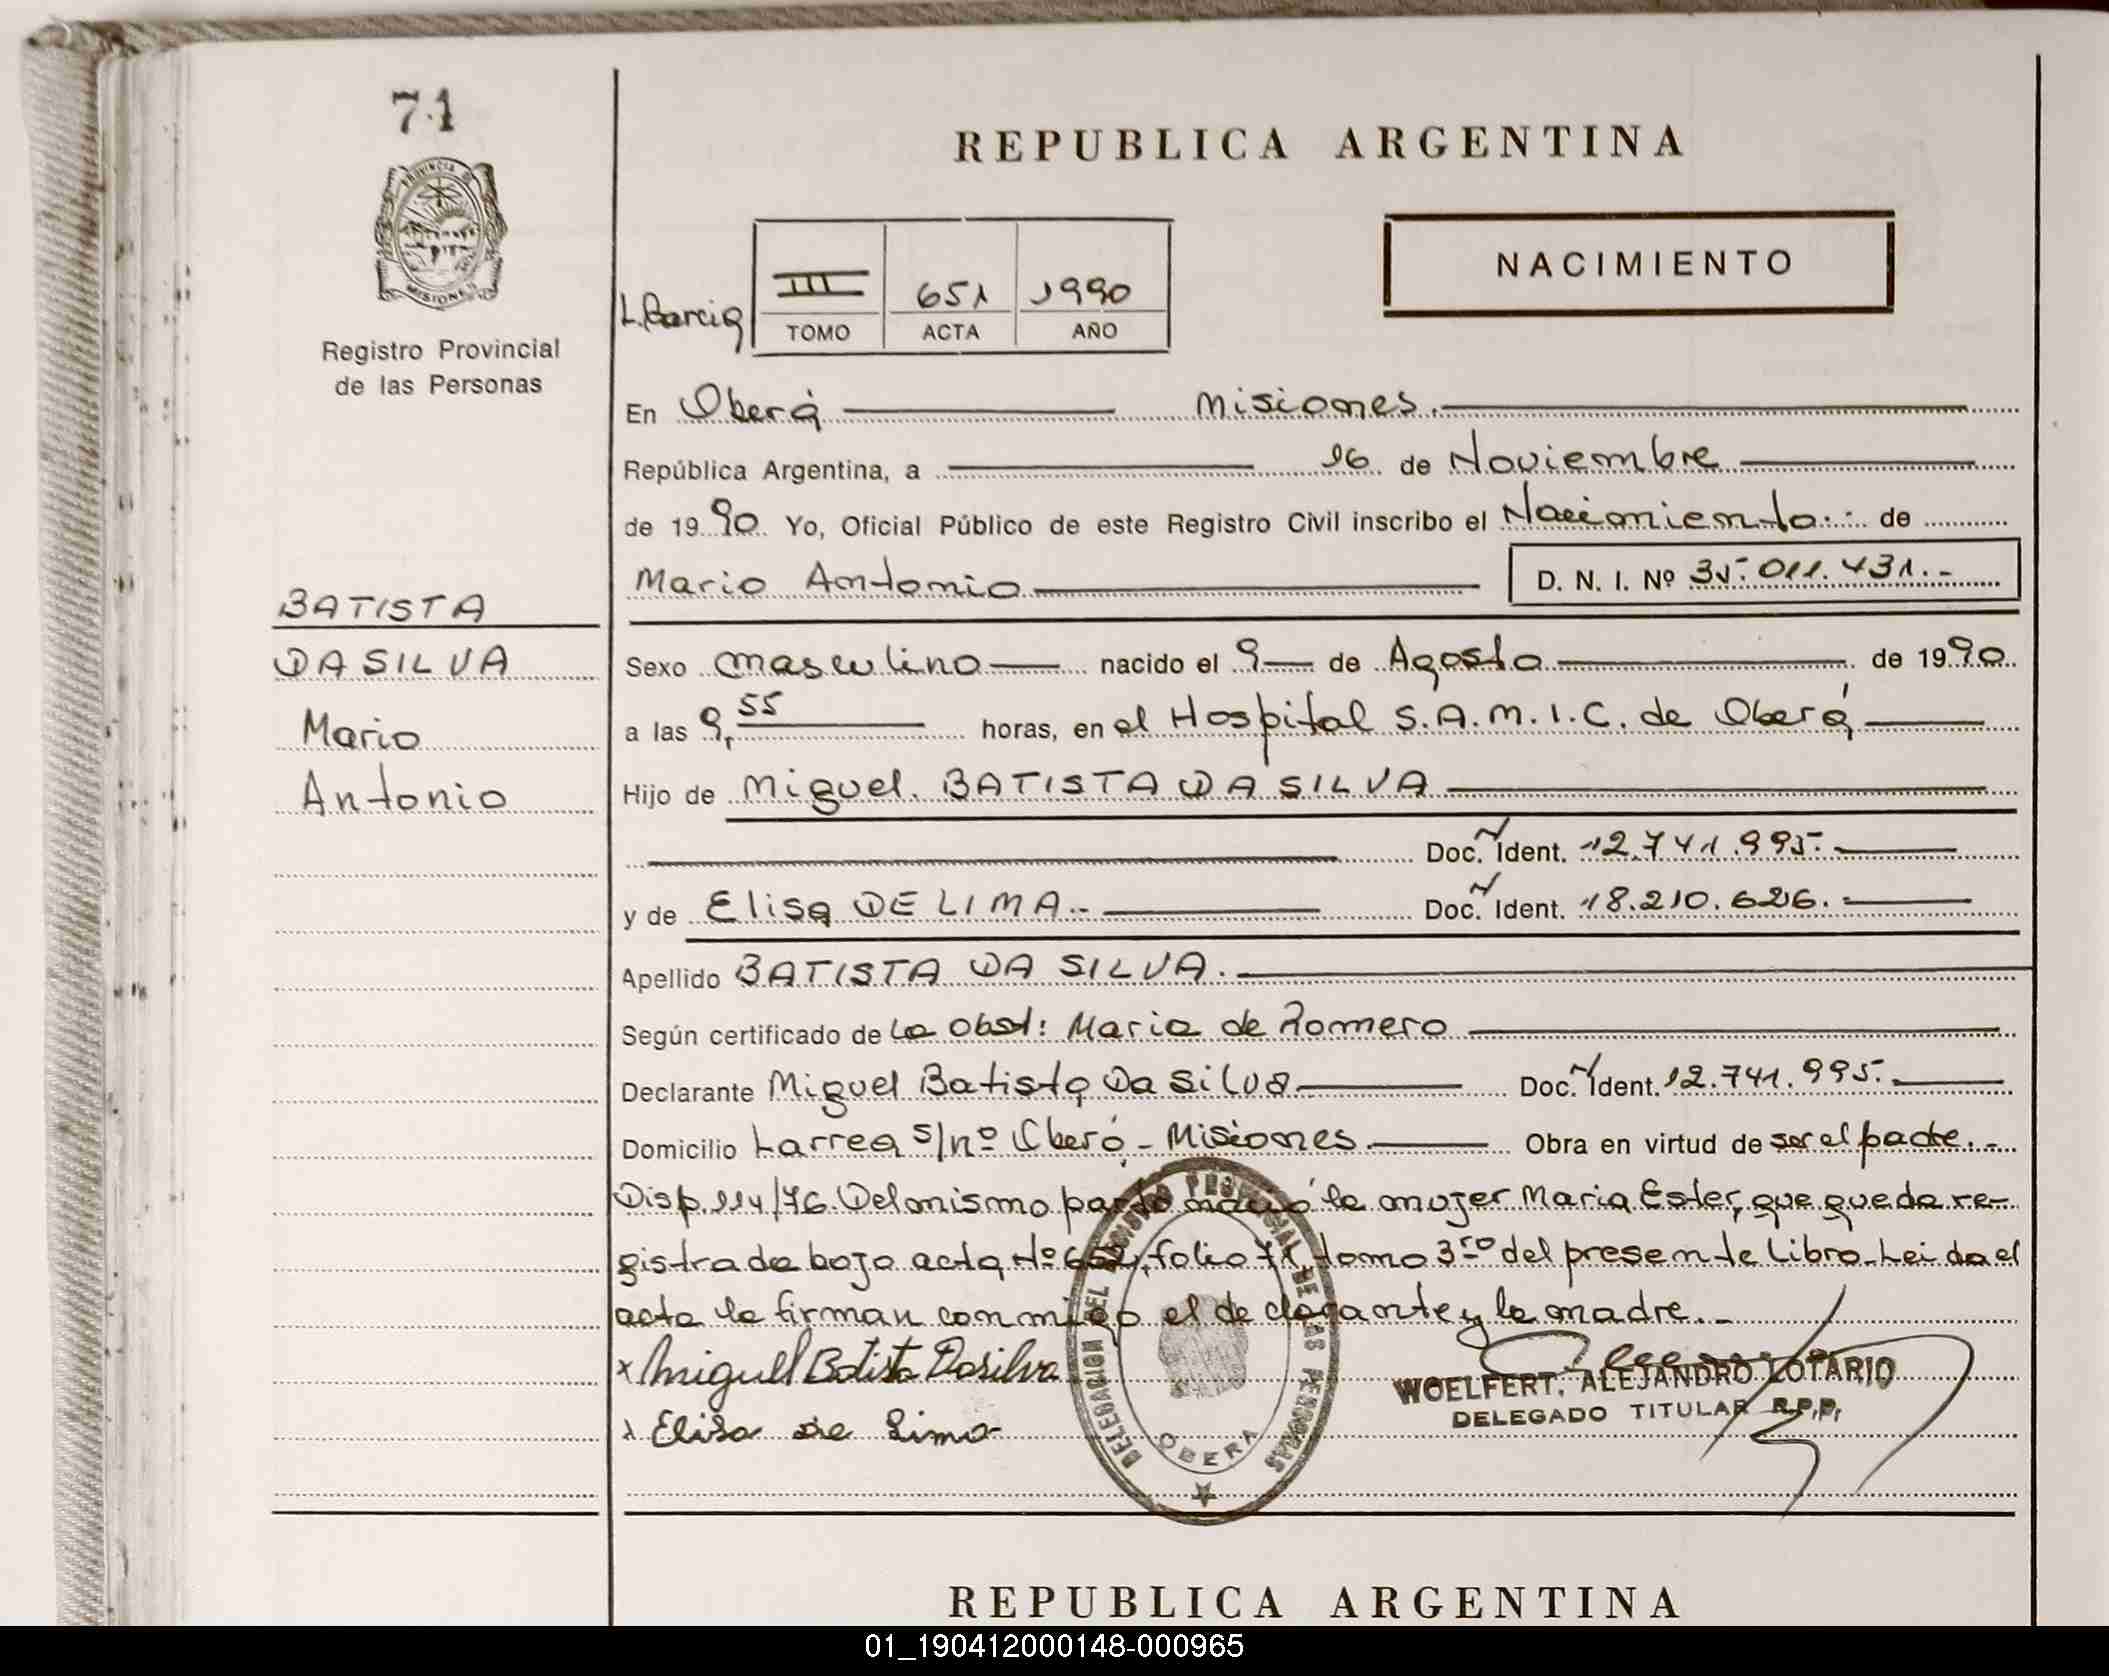 71
PROVINCIA DE
MISIONES
Registro Provincial
de las Personas
BATISTA
DA SILVA
Mario
Antonio
REPUBLICA ARGENTINA
NACIMIENTO
L. Garcia
III 651 1990
TOMO ACTA AÑO
En Oberá Misiones.
República Argentina, a 16 de Noviembre
de 1990 Yo, Oficial Público de este Registro Civil inscribo el Nacimiento de
Mario Antonio D. N. I. Nº 35.011.431.-
Sexo masculino nacido el 9 de Agosto de 1990
a las 9,55 horas, en el Hospital S.A.M.I.C. de Oberá
Hijo de Miguel BATISTA DA SILVA
Doc. Ident. 12.741.995.
y de Elisa DE LIMA.- Doc. Ident. 18.210.626.
Apellido BATISTA DA SILVA.
Según certificado de La Obst: Maria de Romero
Declarante Miguel Batista Da Silva Doc. Ident. 12.741.995.
Domicilio Larrea s/nº Oberá - Misiones Obra en virtud de ser el padre.-
Disp. 114/76. Del mismo parto nació la mujer Maria Ester, que queda re-
gistrada bajo acta Nº 652, folio 71, tomo 3ro del presente Libro. Leida el
acta la firman conmigo el declarante y la madre.-
x Miguel Batista Dasilva
x Elisa de Lima
DELEGACION DEL REGISTRO PROVINCIAL DE LAS PERSONAS
OBERA
WOELFERT, ALEJANDRO LOTARIO
DELEGADO TITULAR R.P.P.
REPUBLICA ARGENTINA
01_190412000148-000965